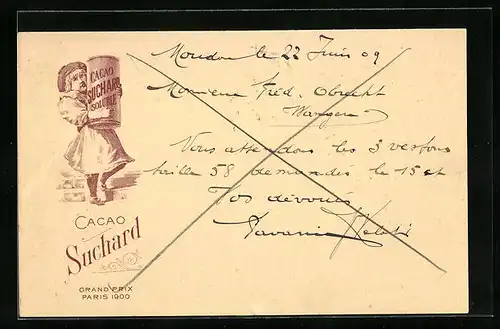 CACAO
SUCHARD
SOLUBLE
CACAO
Suchard
GRAND PRIX
PARIS 1900
Moudon le 22 Juin 09
Monsieur Fred. Obrecht
Wangen
Nous attendons les 3 vestons
taille 58 demandés le 15 ct
Vos dévoués